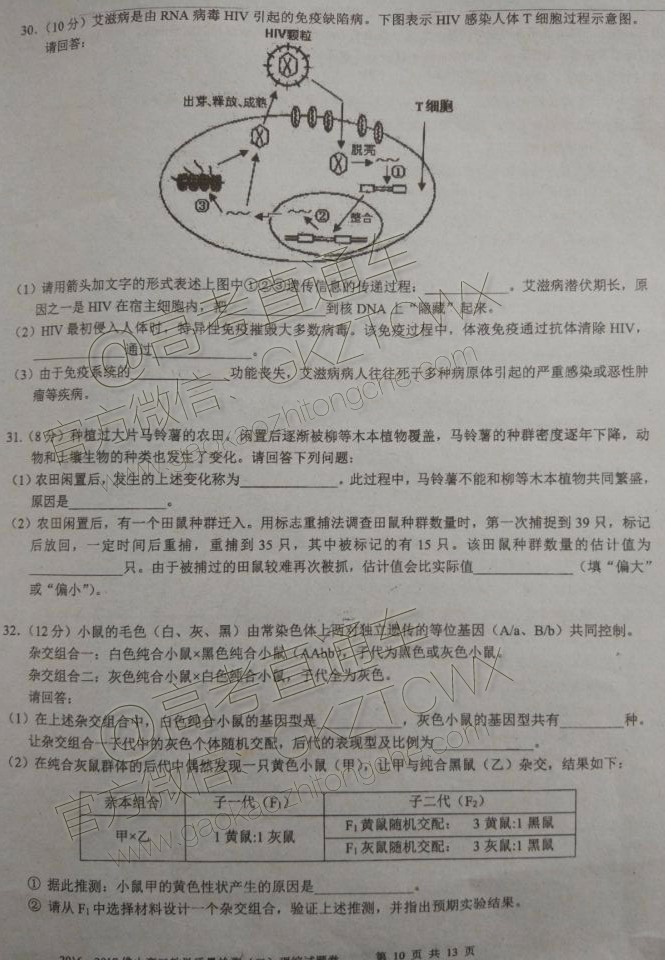 30.（10分）艾滋病是由 RNA 病毒 HIV 引起的免疫缺陷病。下图表示 HIV 感染人体 T 细胞过程示意图。
请回答：
HIV颗粒
出芽、释放、成熟
T 细胞
脱壳
①
③
②
整合
（1）请用箭头加文字的形式表述上图中①②③遗传信息的传递过程：____________。艾滋病潜伏期长，原
因之一是 HIV 在宿主细胞内，把____________到核 DNA 上“隐藏”起来。
（2）HIV 最初侵入人体时，特异性免疫摧毁大多数病毒。该免疫过程中，体液免疫通过抗体清除 HIV，
____________通过____________。
（3）由于免疫系统的____________功能丧失，艾滋病病人往往死于多种病原体引起的严重感染或恶性肿
瘤等疾病。
31.（8分）种植过大片马铃薯的农田，闲置后逐渐被柳等木本植物覆盖，马铃薯的种群密度逐年下降，动
物和土壤生物的种类也发生了变化。请回答下列问题：
（1）农田闲置后，发生的上述变化称为____________。此过程中，马铃薯不能和柳等木本植物共同繁盛，
原因是____________。
（2）农田闲置后，有一个田鼠种群迁入。用标志重捕法调查田鼠种群数量时，第一次捕捉到 39 只，标记
后放回，一定时间后重捕，重捕到 35 只，其中被标记的有 15 只。该田鼠种群数量的估计值为
____________只。由于被捕过的田鼠较难再次被抓，估计值会比实际值____________（填“偏大”
或“偏小”）。
32.（12分）小鼠的毛色（白、灰、黑）由常染色体上两对独立遗传的等位基因（A/a、B/b）共同控制。
杂交组合一：白色纯合小鼠×黑色纯合小鼠（AAbb），子代为黑色或灰色小鼠。
杂交组合二：灰色纯合小鼠×白色纯合小鼠，子代全为灰色。
请回答：
（1）在上述杂交组合中，白色纯合小鼠的基因型是____________，灰色小鼠的基因型共有________种。
让杂交组合一子代中的灰色个体随机交配，后代的表现型及比例为____________。
（2）在纯合灰鼠群体的后代中偶然发现一只黄色小鼠（甲），让甲与纯合黑鼠（乙）杂交，结果如下：
亲本组合 子一代（F₁） 子二代（F₂）
甲×乙 1 黄鼠:1 灰鼠 F₁ 黄鼠随机交配： 3 黄鼠:1 黑鼠
F₁ 灰鼠随机交配： 3 灰鼠:1 黑鼠
① 据此推测：小鼠甲的黄色性状产生的原因是____________。
② 请从 F₁ 中选择材料设计一个杂交组合，验证上述推测，并指出预期实验结果。
第 10 页 共 13 页
@高考直通车
官方微信、GKZTCWX
www.gaokaozhitongche.com
@高考直通车
官方微信、GKZTCWX
www.gaokaozhitongche.com